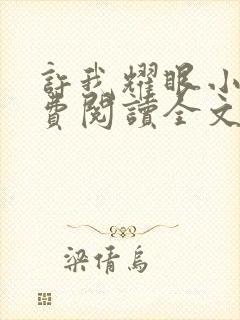 許我耀眼小
費閱讀全文
梁倩烏